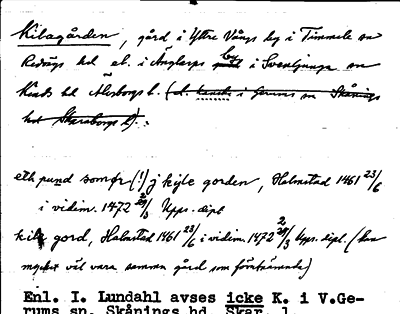 Kilagården, gård i Yttre Vångs by i Timmele sn
Redvägs hd el. i Änglarps by i Svenljunga sn
Kinds hd Älvsborgs l. (el. kanske i Gerums sn Skånings
hd Skaraborgs l.).
eth pund smør (!) j kijle gorden, Halmstad 1461 23/6
i vidim. 1472 29/3 Upps. dipl.
kile gord, Halmstad 1461 23/6 i vidim. 1472 29/3 Upps. dipl. (kan
mycket väl vara samma gård som förstnämnde)
Enl. I. Lundahl avses icke K. i V.Ge-
rums sn, Skånings hd, Skar. l.